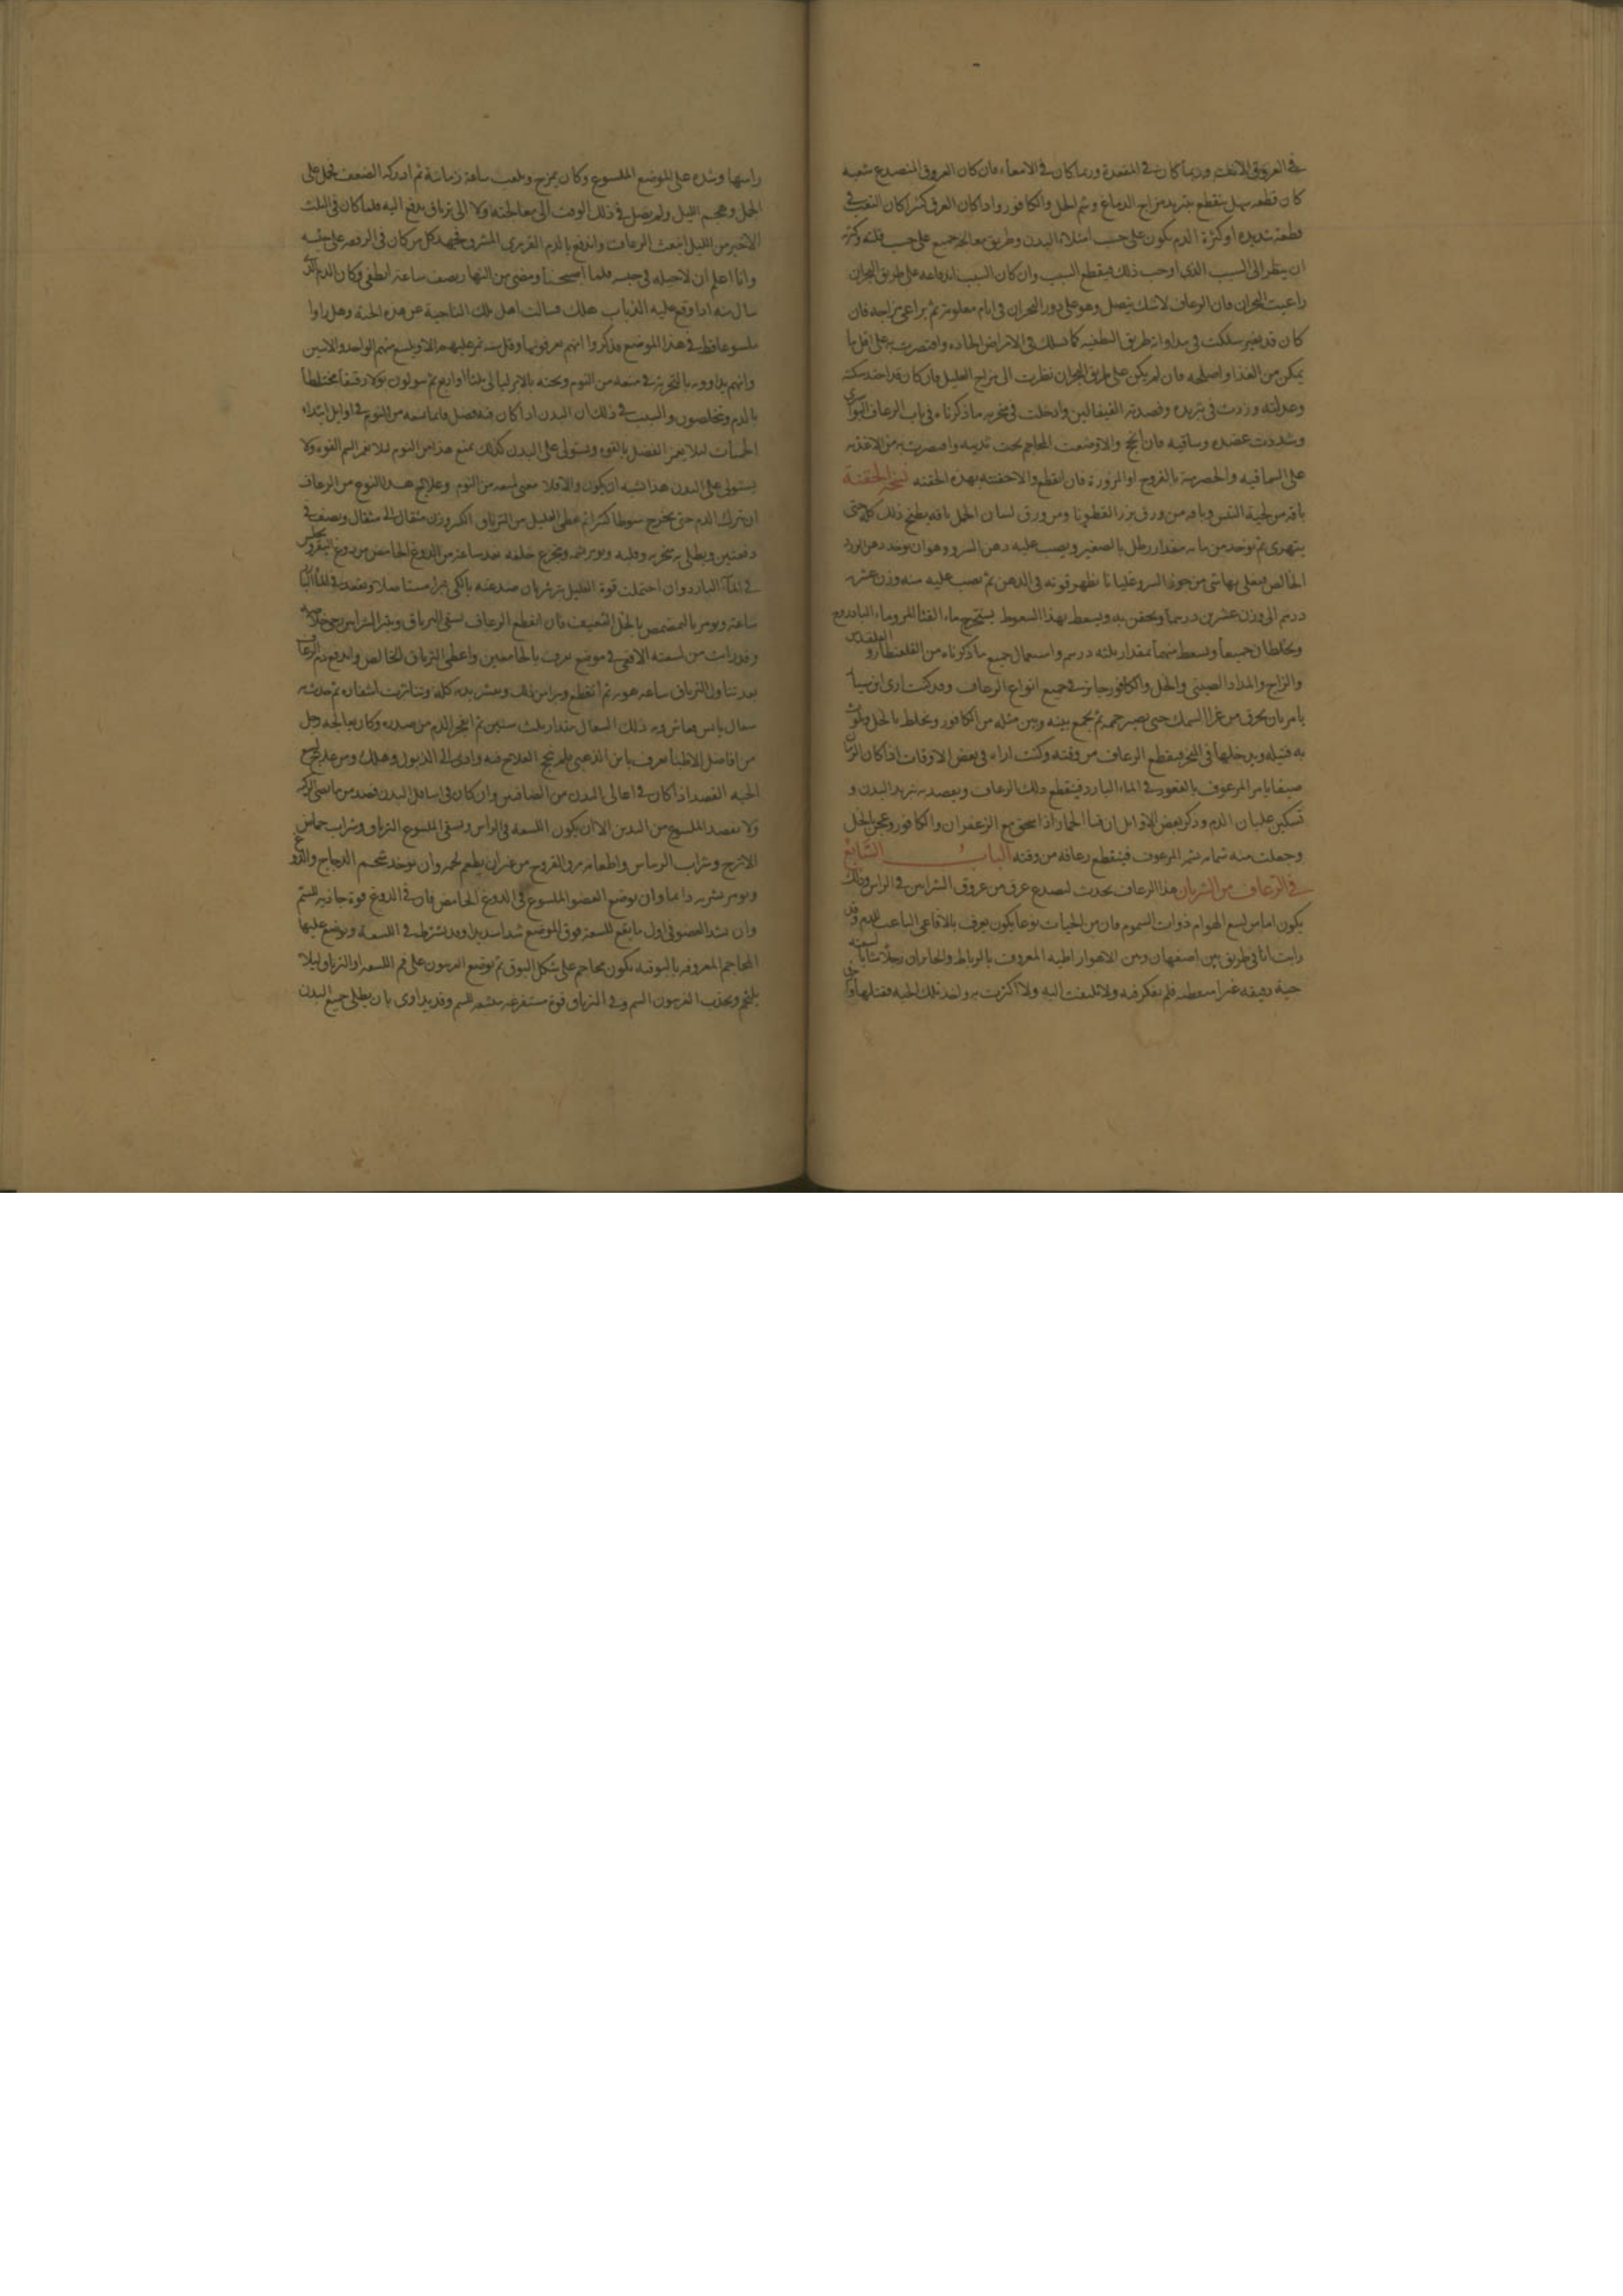 في العروق الانف وربما كان في المقعدة وربما كان في الامعاء فان كان العروق المنصدع شعبه
كان قطعه سهل ينقطع بتبريد مزاج الدماغ وشم الخل والكافور واذا كان العرق كثيرا كان
قطعه شديده او كثرة الدم يكون على حسب امتلاء البدن وطريق معالجة جميع على حسب قلته وكثرته
ان ينظر الى السبب الذي اوجب ذلك فيقطع السبب وان كان السبب اندفاعه على طريق البحران
راعيت البحران فان الرعاف لا شك يتصل وهو على دور البحران في ايام معلومة ثم يراعى مزاجه فان
كان قد تغير سلكت في مداواته طريق التطفيه كما تسلك في الامراض الحاده واقتصرت به على اقل ما
يمكن من الغذا واصلحه فان لم يكن على طريق البحران نظرت الى مزاج العليل فان كان قد
وعدلته وزدت في تبريده وفصدته القيفالين وادخلت في منخريه ما ذكرناه في باب الرعاف
وشددت عضديه وساقيه فان انجح والا وضعت المحاجم تحت ثدييه واقتصرت به من الاغذيه
على السماقيه والحصرمية بالفروج او المزورة فان انقطع والا حقنته بهذه الحقنه نسخة الحقنة
باقة من لحية التيس وباقه من ورق بزر القطونا ومن ورق لسان الحمل باقه يطبخ ذلك كله حتى
يتهرى ثم يوخذ من مايه مقدار رطل بالصغير ويصب عليه دهن السرو وهو ان يوخذ دهن الورد
الخالص فيغلى بها شي من جوز السرو غليانا تظهر قوته في الدهن ثم يصب عليه منه وزن عشره
درهم الى وزن عشرين درهما ويحقن به ويسعط بهذا السعوط يستخرج ماء القثا المر وماء الباذروج
ويخلطان جميعا ويسعط منهما بمقدار ثلثه درهم واستعمال جميع ما ذكرناه من القلقطار والقلقديس
والزاج والمداد الصيني والخل والكافور جايز في جميع انواع الرعاف وقد كنت ارى ابن سيار
يامر بان يحرق من غرا السمك حتى يصير حممه ثم يجمع بينه وبين مثله من الكافور ويخلط بالخل ويلوث
به فتيله ويدخلها في المنخر فيقطع الرعاف من وقته وكنت اراه في بعض الاوقات اذا كان الزمان
صيفا يامر المرعوف بالقعود في الماء البارد فينقطع ذلك الرعاف ويقصد به تبريد البدن و
تسكين غليان الدم وذكر بعض الاوايل ان قثا الحمار اذا سحق مع الزعفران والكافور وعجن بالخل
وجعلت منه شمامه يشم المرعوف فينقطع رعافه من وقته الباب السابع
في الرعاف من الشريان هذا الرعاف يحدث لتصدع عرق من عروق الشرايين في الراس وذلك
يكون اما من لسع الهوام ذوات السموم فان من الحيات نوعا يكون يعرف بالافاعي الباعث للدم وقد
رايت انا في طريق بين اصفهان وبين الاهواز المعروف بالرباط والخابران رجلا شابا لسعته
حية دقيقه غير فلم يفكر فيه ولا تلفت اليه ولا اكترث به واخذ تلك الحيه فقتلها
راسها وشده على الموضع الملسوع وكان يمزح ويلعب ساعة زمانية ثم ادركه الضعف فحمل على
الحمل وهجم الليل ولم يصل في ذلك الوقت الى معالجته ولا الى ترياق يدفع اليه فلما كان في الثلث
الاخير من الليل انبعث الرعاف واندفع بالدم القرمزي المشرق فجهد كل من كان في الرفقه على حبسه
وانا اعلم ان لا حيله في حبسه فلما اصبحنا ومضى من النهار نصف ساعه انطفى وكان الدم الذي
سال منه اذا وقع عليه الذباب هلك فسالت اهل تلك الناحية عن هذه الحية وهل راوا
ملسوعا قط في هذا الموضع فذكروا انهم يعرفونها وقل سنه تمر عليهم الا ويلسع منهم الواحد والاثنين
وانهم يداوونه بالتجربة في منعه من النوم ثلثا او اربع ثم يبولون بولا رقيقا مختلطا
بالدم ويتخلصون والسبب في ذلك ان البدن اذا كان فيه فضل فانما نمنعه من النوم في اوايل ابتداء
الحميات ليلا يغمر الفضل بالقوه ويستولي على البدن كذلك يمنع هذا من النوم ليلا يغمر السم القوه ولا
يستولي على البدن هذا يشبه ان يكون والا فلا معنى لمنعه من النوم وعلاج هذا النوع من الرعاف
ان تترك الدم حتى يخرج كثيرا ثم يعطى العليل من الترياق الكبير وزن مثقال الى مثقال ونصف في
دفعتين ويطلى به منخريه وقلبه ويومر بشمه ويجرع خلفه بعد ساعة من الدوغ الحامض من دوغ البقر ويجلس
في الماء البارد وان احتملت قوة العليل بتر شريان صدغه بالكي بترا مستاصلا ويقعد في الماء البارد
ساعه ويومر بالتمضمض بالخل الثقيف فان انقطع الرعاف يسقى الترياق
وقد رايت من لسعته الافعى في موضع يعرف بالجامعين واعطي الترياق الخالص واندفع دم الرعاف
بعد تناول الترياق ساعه هويه ثم انقطع وبرا من ذلك بدنه كله وتناثرت اشفاره ثم حدث به
سعال يابس وعاش به ذلك السعال مقدار ثلث سنين ثم انفجر الدم من صدره وكان يعالجه رجل
من افاضل الاطبا يعرف بابن الذهبي فلم ينجح العلاج فيه وادى الى الذبول وهلك ومن علاج لسع
الحيه الفصد اذا كان في اعالي البدن من الصافنين وان كان في اسافل البدن فصد من
ولا يفصد الملسوع من اليدين الا ان يكون اللسعه في الراس ويسقى الملسوع الترياق وشراب حماض
الاترج وشراب الريباس واطعامه مرق الفروج من غير ان يطعم لحمه وان يوخذ شحم الدجاج والدوغ
ويومر بشربه دايما وان يوضع العضو الملسوع في الدوغ الحامض فان في الدوغ قوة جاذبه للسم
وان يشد العضو في اول ما يقع اللسعه فوق الموضع شدا شديدا وقد يشرط في اللسعه ويوضع عليها
المحاجم المعروفه بالبوقيه يكون محاجم على شكل البوق ثم يوضع الفربيون على فم اللسعه او الترياق ليلا
يلتحم ويجذب الفربيون السم وفي الترياق قوة مستفرغه للسم وقد يداوى بان يطلى جميع البدن